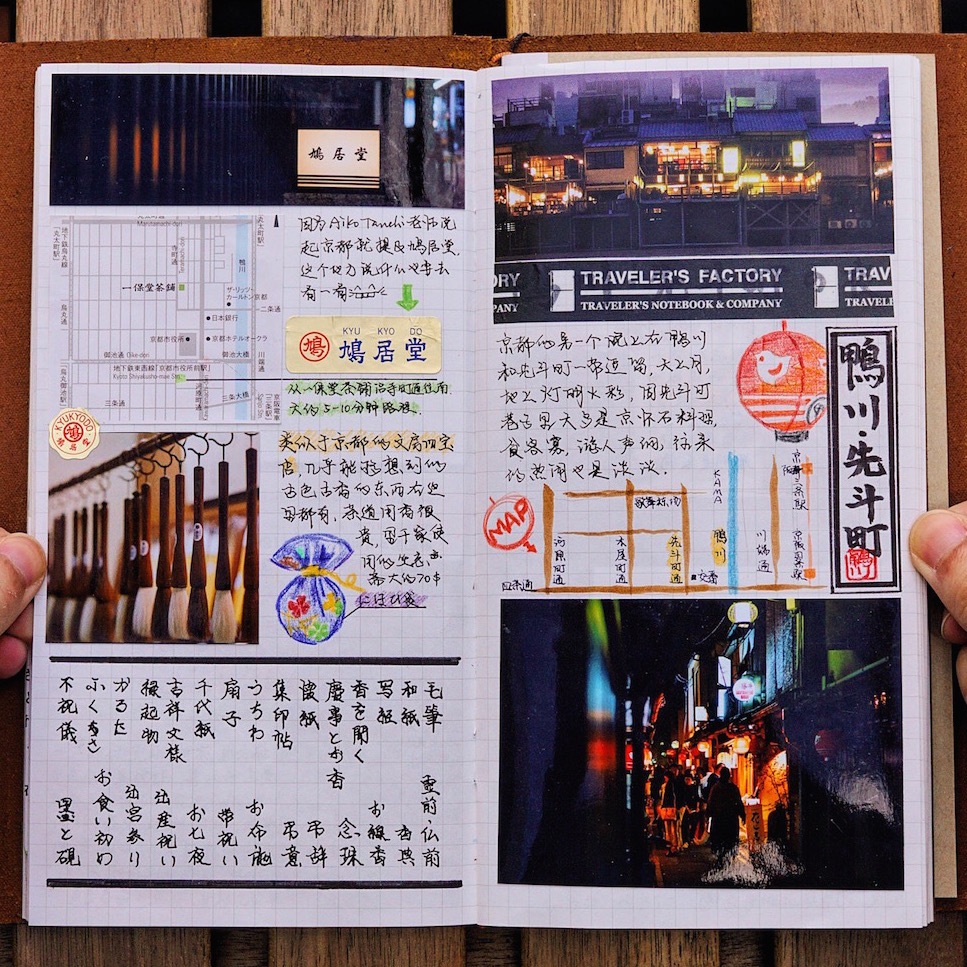 鳩居堂
丸太町通
Marutamachi-dori
「丸太町駅」
地下鉄烏丸線
烏丸通
寺町通
鴨川
一保堂茶舗
ザ・リッツ・
カールトン京都
二条通
日本銀行
京都市役所
京都ホテルオークラ
御池通 Oike-dori
御池大橋
川端通
地下鉄東西線「京都市役所前駅」
Kyoto Shiyakusho-mae Stn.
「烏丸御池駅」
河原町通
三条通
三条大橋
京阪電車
因为Aiko Tanechi老师说
起京都就提及鳩居堂,
这个地方说什么也要去
看一看
KYU KYO DO
鳩
鳩居堂
从一保堂茶铺沿寺町通往南
大约5-10分钟路程.
KYUKYODO
鳩居堂
类似于京都的文房四宝
店,几乎能
古色古香的东西在这
里都有,茶道用香很
貴,
用的
大约70$
にほひ袋
毛筆
和紙
写経
香を聞く
慶事とお香
懐紙
集印帖
うちわ
扇子
千代紙
吉祥文様
縁起物
かるた
ふくさ
不祝儀
霊前・仏前
香典
お線香
念珠
弔辞
弔意
お布施
帯祝い
お七夜
出産祝い
お宮参り
お食い初め
墨と硯
ORY
ANY
TRAVELER'S FACTORY
TRAVELER'S NOTEBOOK & COMPANY
TRAV
TRAVELE
京都的另一个晚上在鴨川
和先斗町一带逗留,大文月,
地上灯明火彩,因先斗町
巷子里大多是京怀石料理,
食客寡,语人声细,往来
的热闹也是淡淡.
鴨川·先斗町
MAP
歌舞練场
河原町通
木屋町通
先斗町通
KAMA
鴨川
川端通
交番
四条通
京阪三条駅
京阪四条駅